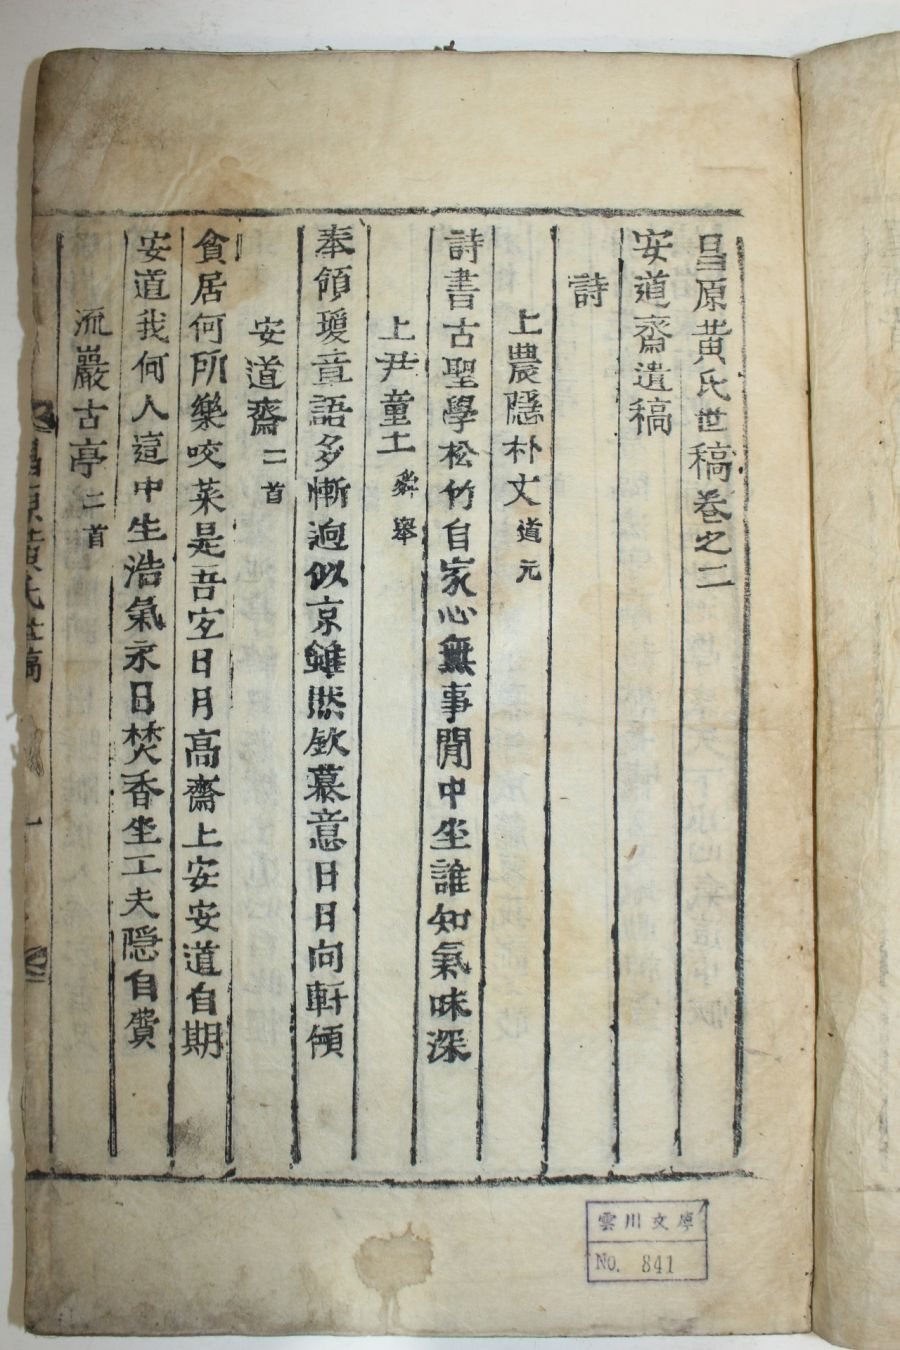 昌原黃氏世稿卷之二
安道齋遺稿
詩
上農隱朴丈道元
詩書古聖學松竹自家心無事閒中坐誰知氣味深
上尹童土舜舉
奉領瓊章語多慚逈似京雖然欽慕意日日向軒傾
安道齋二首
貧居何所樂咬菜是吾安日月高齋上安安道自期
安道我何人這中生浩氣永日焚香坐工夫隱自費
流巖古亭二首
昌原黃氏世稿 一
雲川文庫
No. 841